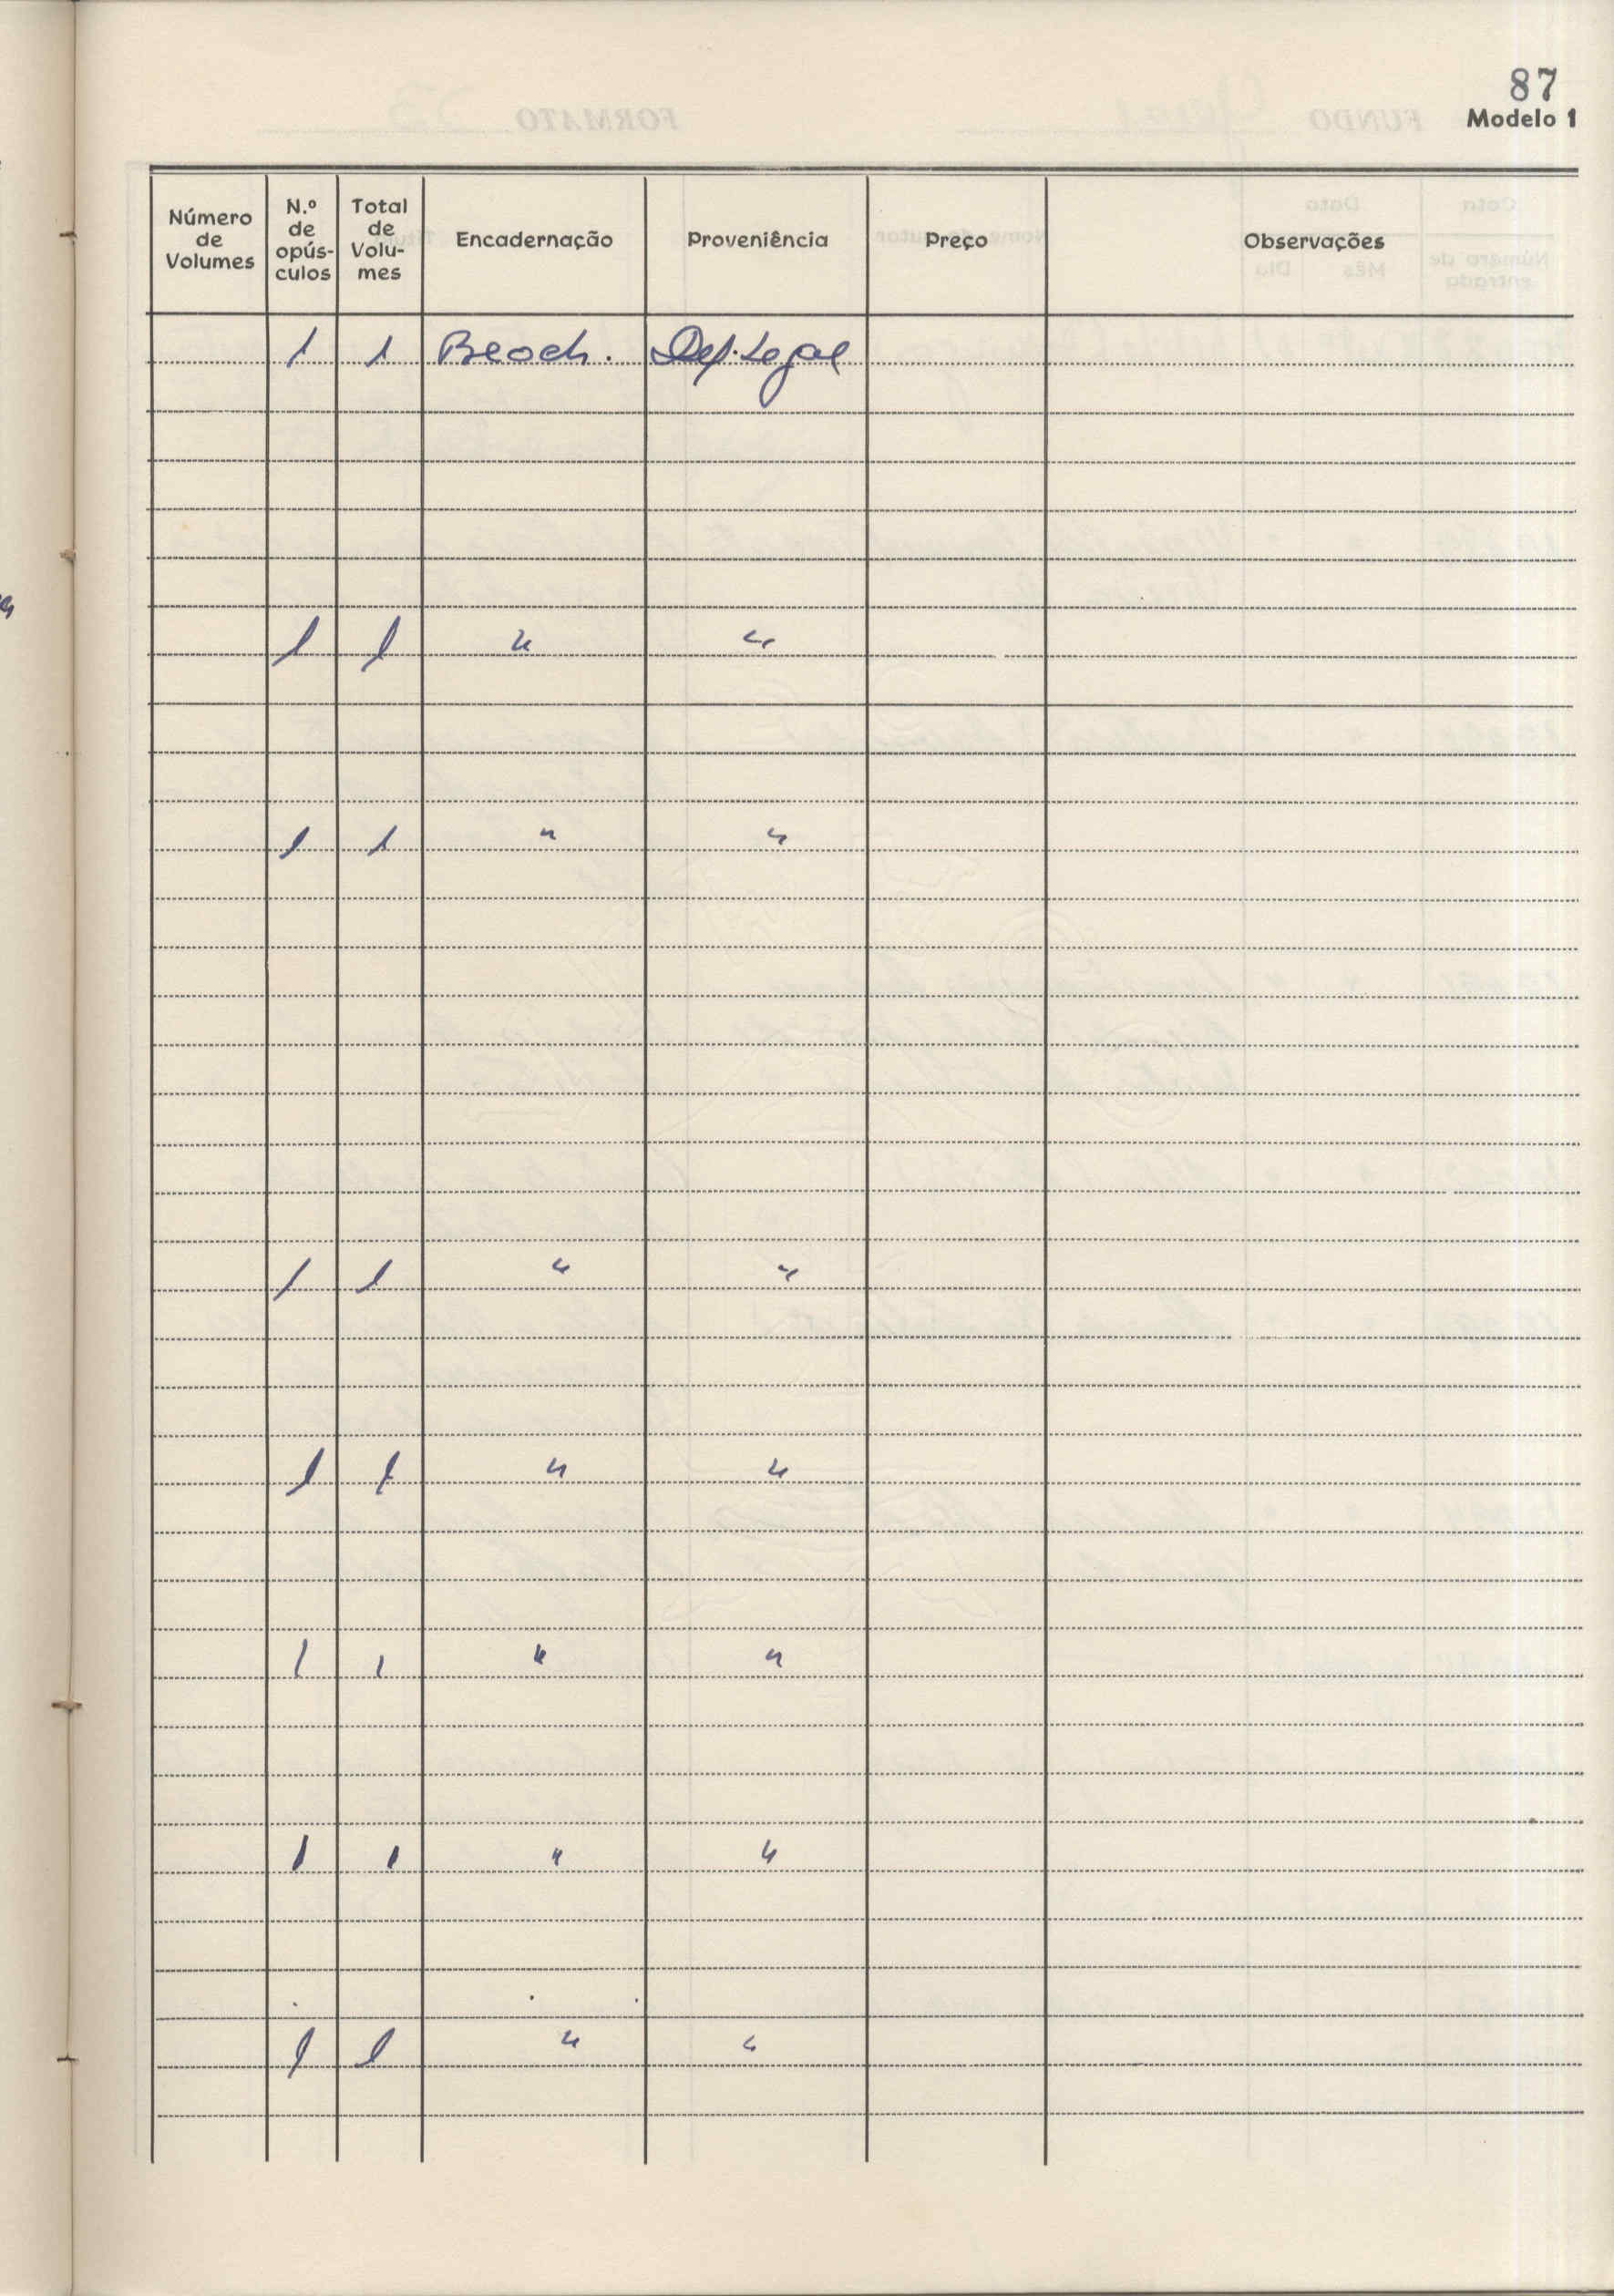 87
Modelo 1
Número de Volumes N.º de opús-culos Total de Volu-mes Encadernação Proveniência Preço Observações
1 1 Broch. Dep. Legal
1 1 " "
1 1 " "
1 1 " "
1 1 " "
1 1 " "
1 1 " "
1 1 " "